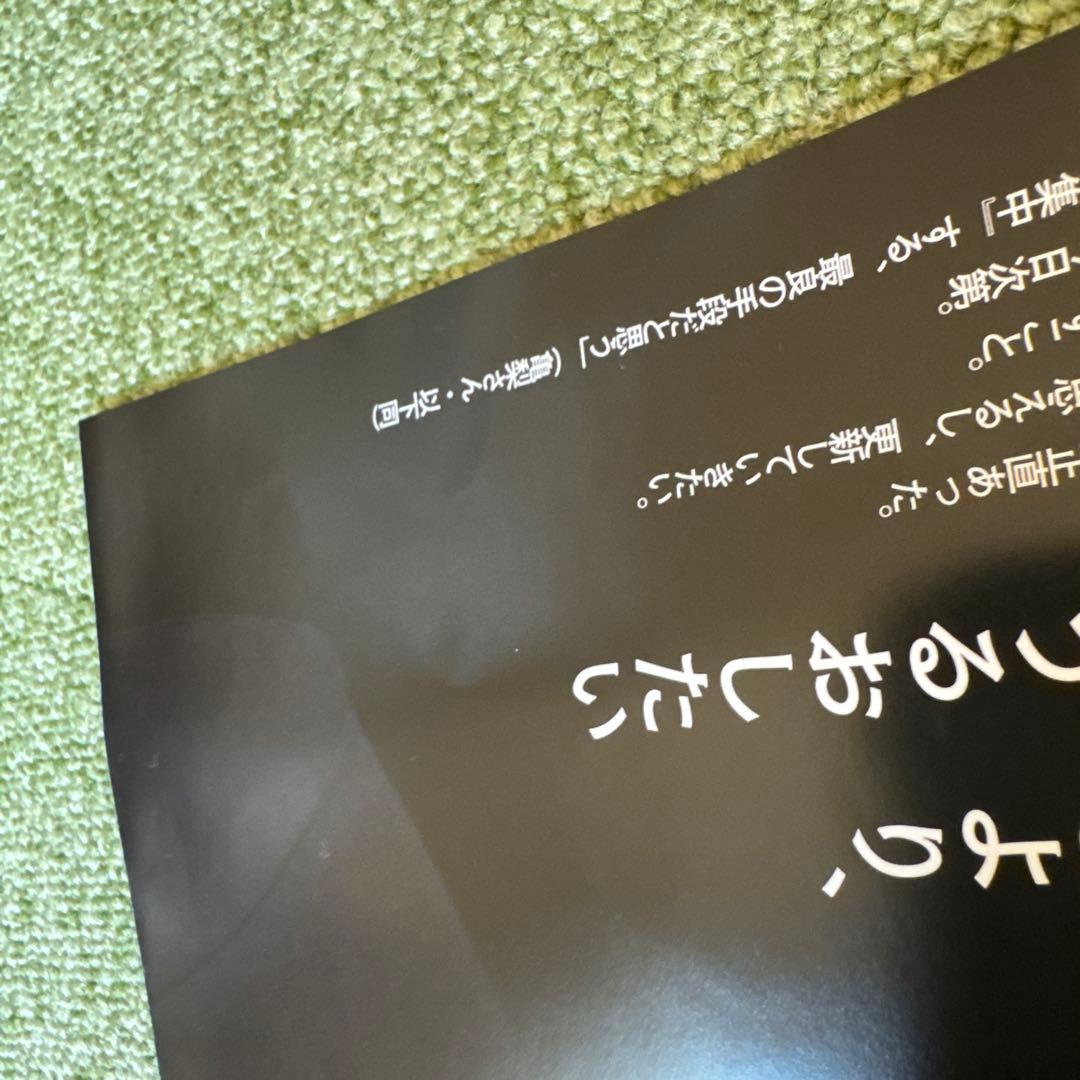 より、
うるおしたい
正直あった。
思えるし、更新していきたい。
すこと。
日次第。
集中』する、最良の手段だと思う」(亀梨さん・以下同)